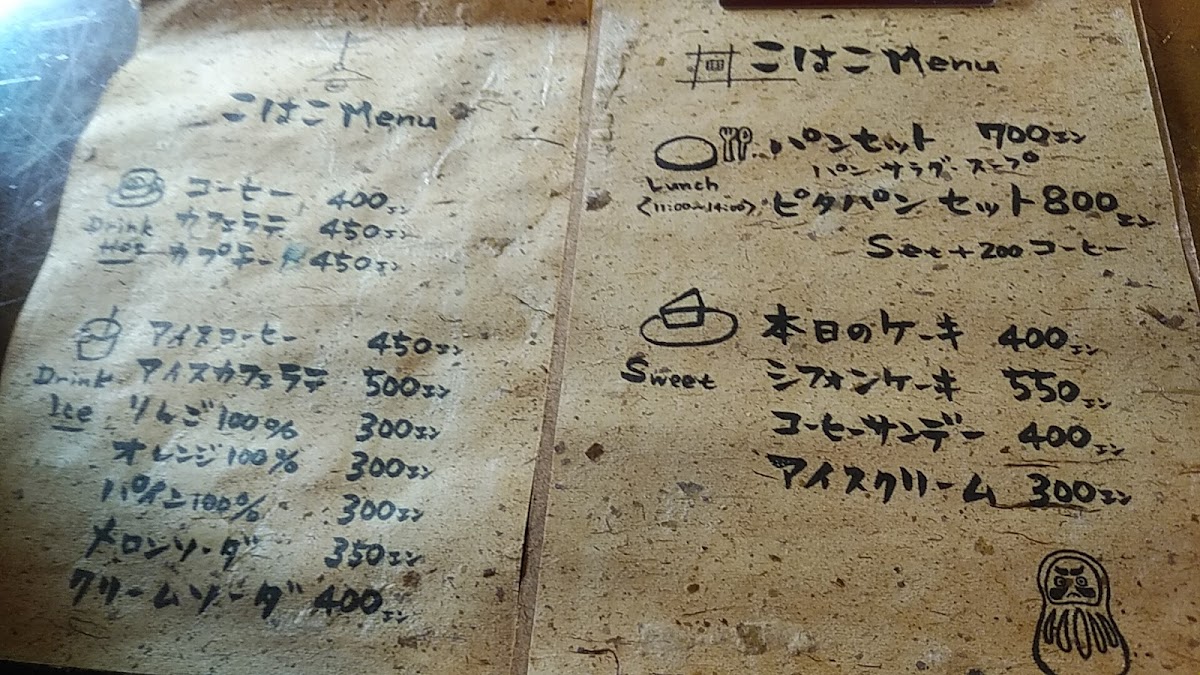 こはこ Menu
コーヒー 400エン
Drink カフェラテ 450エン
Hot カプチーノ 450エン
アイスコーヒー 450エン
Drink アイスカフェラテ 500エン
Ice りんご100% 300エン
オレンジ100% 300エン
パイン100% 300エン
メロンソーダ 350エン
クリームソーダ 400エン
こはこ Menu
パンセット 700エン
パン・サラダ・スープ
Lunch
<11:00~14:00> ピタパンセット 800エン
Set+200コーヒー
本日のケーキ 400エン
Sweet シフォンケーキ 550エン
コーヒーサンデー 400エン
アイスクリーム 300エン